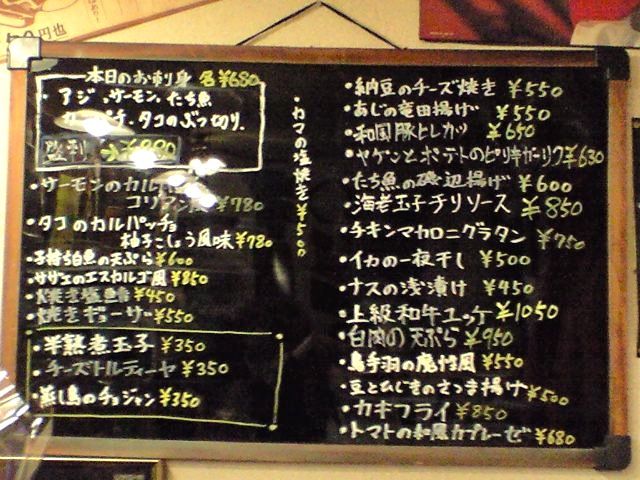 本日のお刺身 各¥680
・アジ、サーモン、たち魚
タコのぶつ切り、
・サーモンのカル
コリアン ¥780
・タコのカルパッチョ
柚子こしょう風味¥780
・子持ち白魚の天ぷら¥600
・サザエのエスカルゴ風¥850
・焼き塩鯖¥450
・焼きギョーザ¥550
・半熟煮玉子 ¥350
・チーズトルティーヤ ¥350
・蒸し鳥のチョジャン¥350
・カマの塩焼き ¥500
・納豆のチーズ焼き ¥550
・あじの竜田揚げ ¥550
・和国豚ヒレカツ ¥650
・ヤゲンとポテトのピリ辛ガーリック¥630
・たち魚の磯辺揚げ ¥600
・海老玉子チリソース ¥850
・チキンマカロニグラタン ¥750
・イカの一夜干し ¥500
・ナスの浅漬け ¥450
・上級和牛ユッケ ¥1050
・白肉の天ぷら ¥950
・鳥手羽の魔竹風 ¥550
・豆とひじきのさつま揚げ ¥500
・カキフライ ¥850
・トマトの和風カプレーゼ ¥680